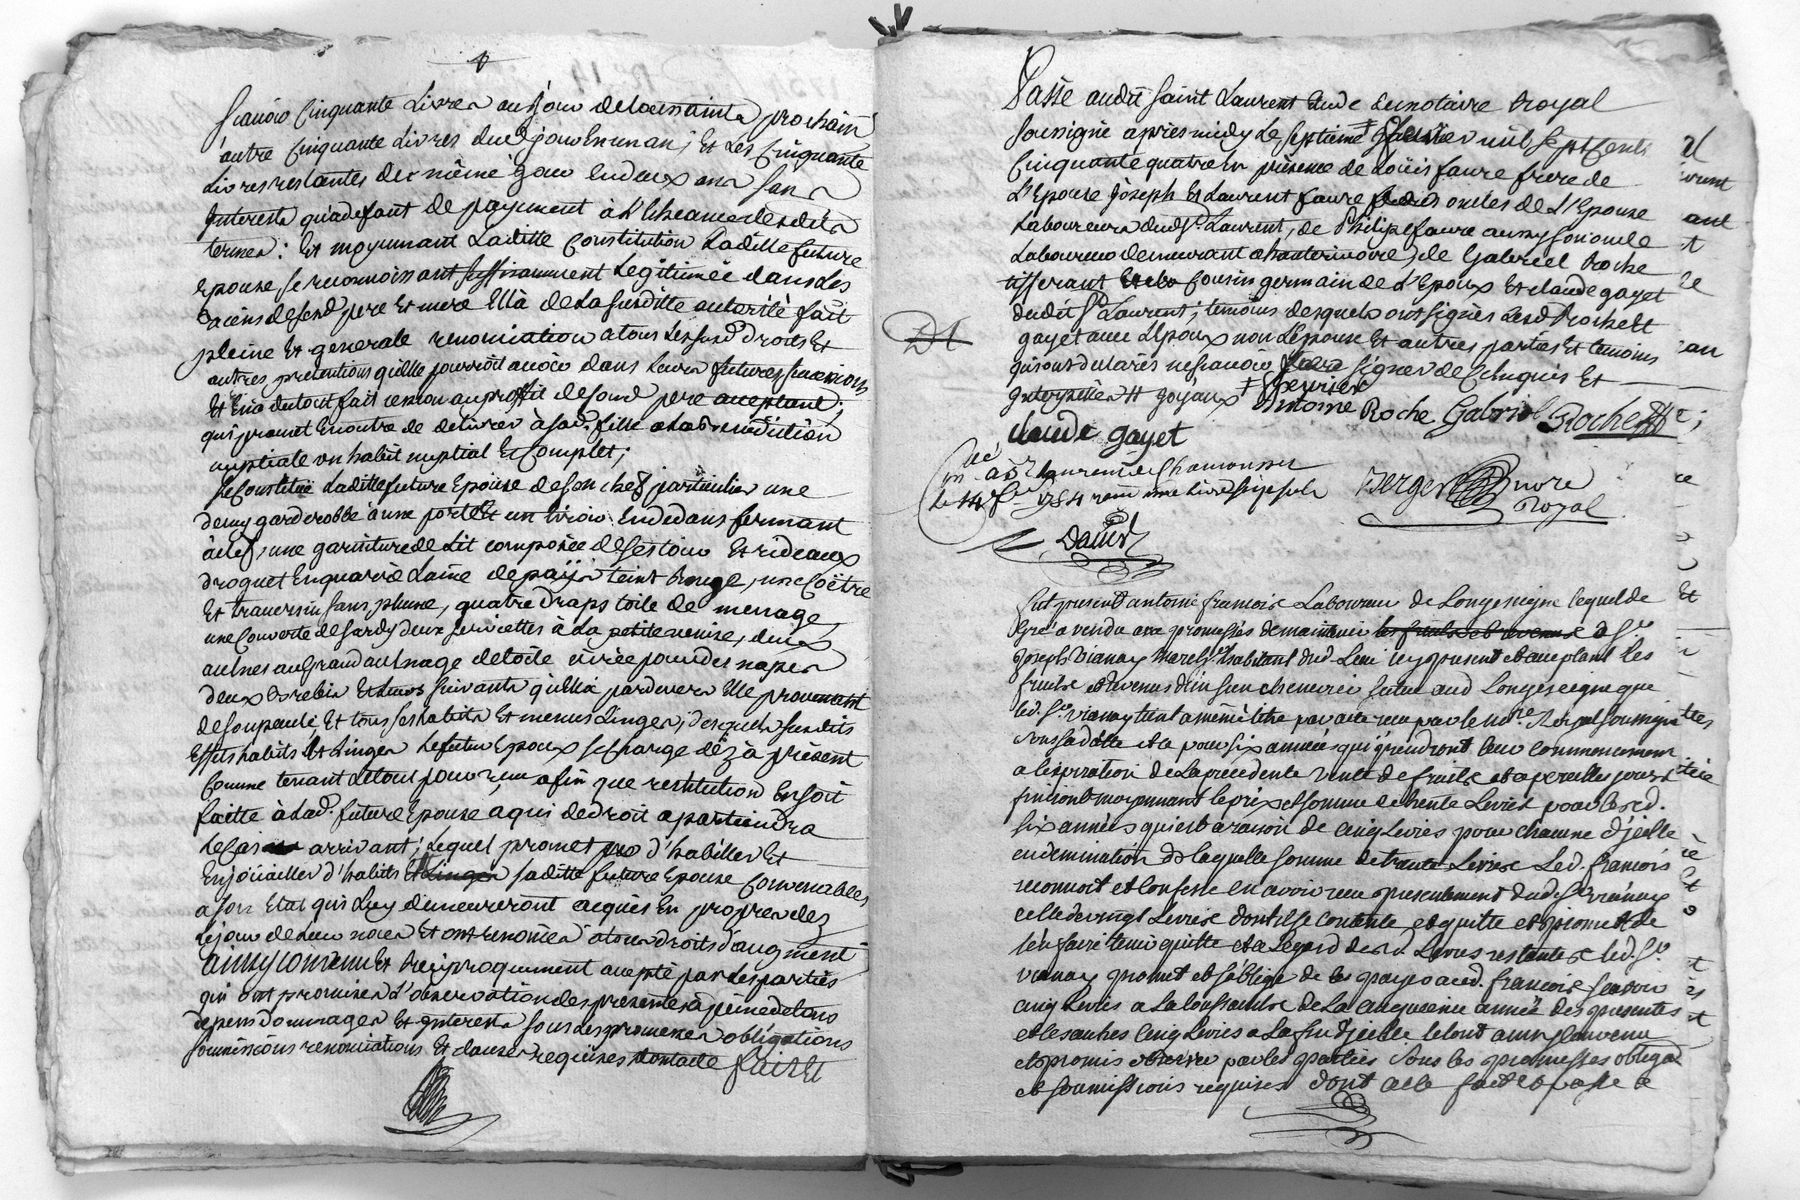 scavoir Cinquante Livres au jour de toussaint prochain
autre Cinquante Livres dud. jour en un an; Et les Cinquante
Livres restantes de même jour en deux ans sans
Interests qu'a defaut de payement à L'Echeance desdits
termes: Et moyennant Laditte Constitution Laditte future
epouse, se reconnoissant suffisamment Legitimée dans Les
biens desesd. pere Et mere Ella de La susditte autorité fait
pleine Et generale renonciation a tous Lesusd. droits Et
autres pretentions qu'elle pourroit avoir dans Leurs futures successions
Et En a du tout fait cession au proffit desond. pere acceptant;
qui promet En outre de delivrer à sad. fille a La benediction
nuptiale un habit nuptial Et Complet;
Se Constitue Laditte future Epouse de son chef particulier une
demy garderobbe à une porte Et un tiroir En dedans fermant
à clef, une garniture de Lit composée de ses tour Et rideaux
droguet En quarré Laine de païs teint Rouge, une Coëtre
Et traversin sans plume, quatre draps toile de menage
une Couverte de sardy deux serviettes à La petite venise, deux
aulnes au Grand aulnage de toile cirée pour des napes
deux Brebis Et Leurs suivants qu'Ella pardevers Elle provenant
de son paule Et tous ses habits Et menus Linges; desquels susdits
Effets habits Et Linges Le futur Epoux se charge dèz à present
Comme tenant Le tout pour reçu afin que restitution En soit
faitte à Lad. future Epouse a qui de droit apartiendra
Le Cas arrivant; Lequel promet d'habiller Et
Enjoüailler d'habits Et Linges saditte future Epouse Convenables
a son Etat qui Luy demeureront acquis En propre dez
Le jour de Leur noces Et ont renoncés a tous droits d'augment
ainsy convenu Et Reciproquement accepté par Les parties
qui ont promises L'observation des presentes à peine de tous
depens dommages Et Interests sous Les promesses obligations
soumissions renonciations Et clauses requises dont acte fait Et
Passé audit Saint Laurent Etude du notaire Royal
soussigné après midy Le septieme Fevrier mil sept Cents
Cinquante quatre En présence de Loüis faure frere de
L'Epouse Joseph Et Laurent faure oncles de L'Epouse
Laboureurs dud. St. Laurent, de Philipe faure aussy son oncle
Laboureur demeurant a hauterivoire, de Gabriel Roche
tisserant Cousin germain de L'Epoux Et claude gayet
dudit St. Laurent; temoins desquels ont signés Lesd. Roche Et
gayet avec L'Epoux non L'Epouse Et autres parties Et temoins
qui ont declarés ne scavoir signer de Ce Enquis Et
Interpellés # goyaux ‡ fevrier
Antoine Roche Gabriel Roche
claude gayet
Con.lé à St Laurent de Chamousset
le 14 fer 1754 reçu une Livre six sols
Berger nore
Royal
David
fut present antoine francois Laboureur de Longeseigne lequel de
Gré a vendu avec promesses de maintenir les fruits et revenus a Sr.
Joseph Vianay March. habitant dud. Lieu icy present et acceptant les
fruits et revenus d'un sien chenevier situé aud. Longeseigne que
led. Sr. Vianay tient a même titre par acte reçu par le no.re Royal soussigné
sous sa datte et ce pour six années qui prendront leur commencement
a l'expiration de La precedente vente de fruits et a pareilles jours
finiront moyennant le prix et somme de trente Livres pour lesd.
six années qui est a raison de cinq Livres pour chacune d'jcelle
en deminution de laquelle somme de trente Livres Led. francois
reconnoit et confesse en avoir reçu presentement dud. Sr. Vianay
celle de vingt Livres dont il se contente et quitte et promet de
l'en faire tenir quitte et a l'egard des d. Livres restantes led. Sr.
Vianay promet et s'oblige de les payer aud. francois scavoir
cinq Livres a La de La cinquieme année des presentes
et les autres cinq Livres a La fin d'jcelle le tout ainsy convenu
et promis observer par les parties sous les promesses obliga.
et soumissions requises dont acte fait et passé a